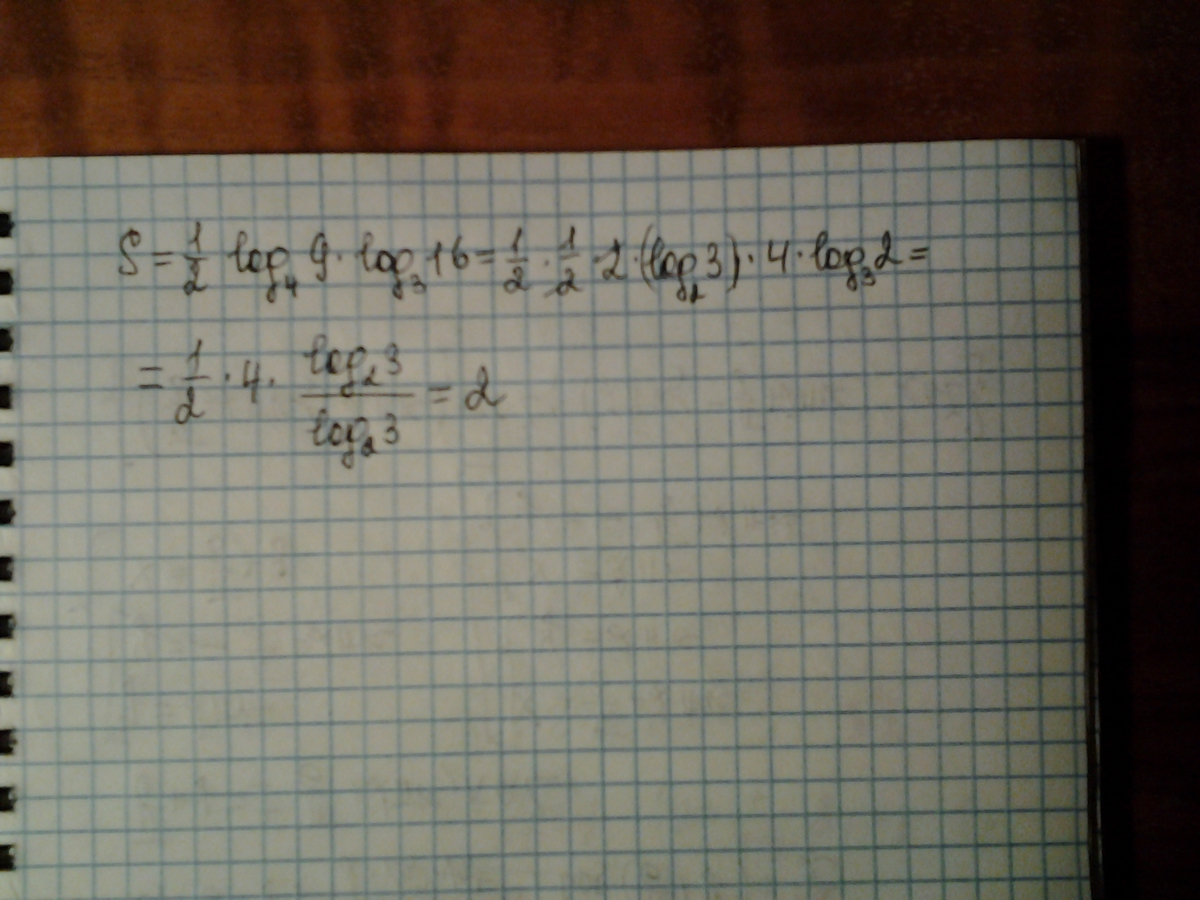 S = 1/2 log₄ 9 · log₃ 16 = 1/2 · 1/2 · 2 · (log₂ 3) · 4 · log₃ 2 =
= 1/2 · 4 · log₂ 3 / log₂ 3 = 2